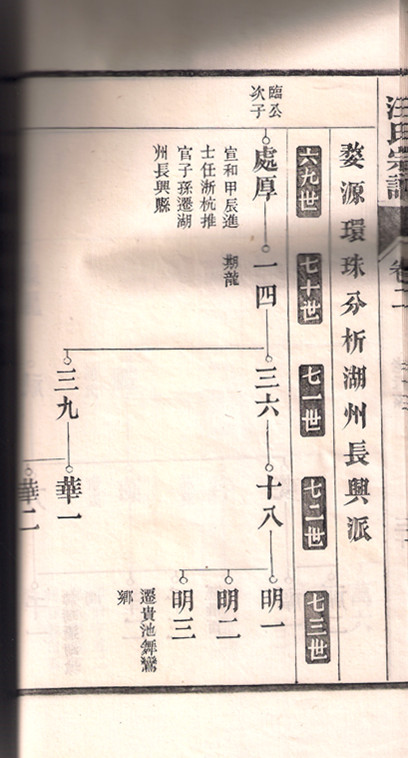 汪氏宗譜
卷二
婺源環珠分析湖州長興派
六九世
七十世
七一世
七二世
七三世
臨公
次子
處厚
宣和甲辰進
士任浙杭推
官子孫遷湖
州長興縣
一四
期龍
三六
三九
十八
華一
華二
明一
明二
明三
遷貴池舞鸞
鄉